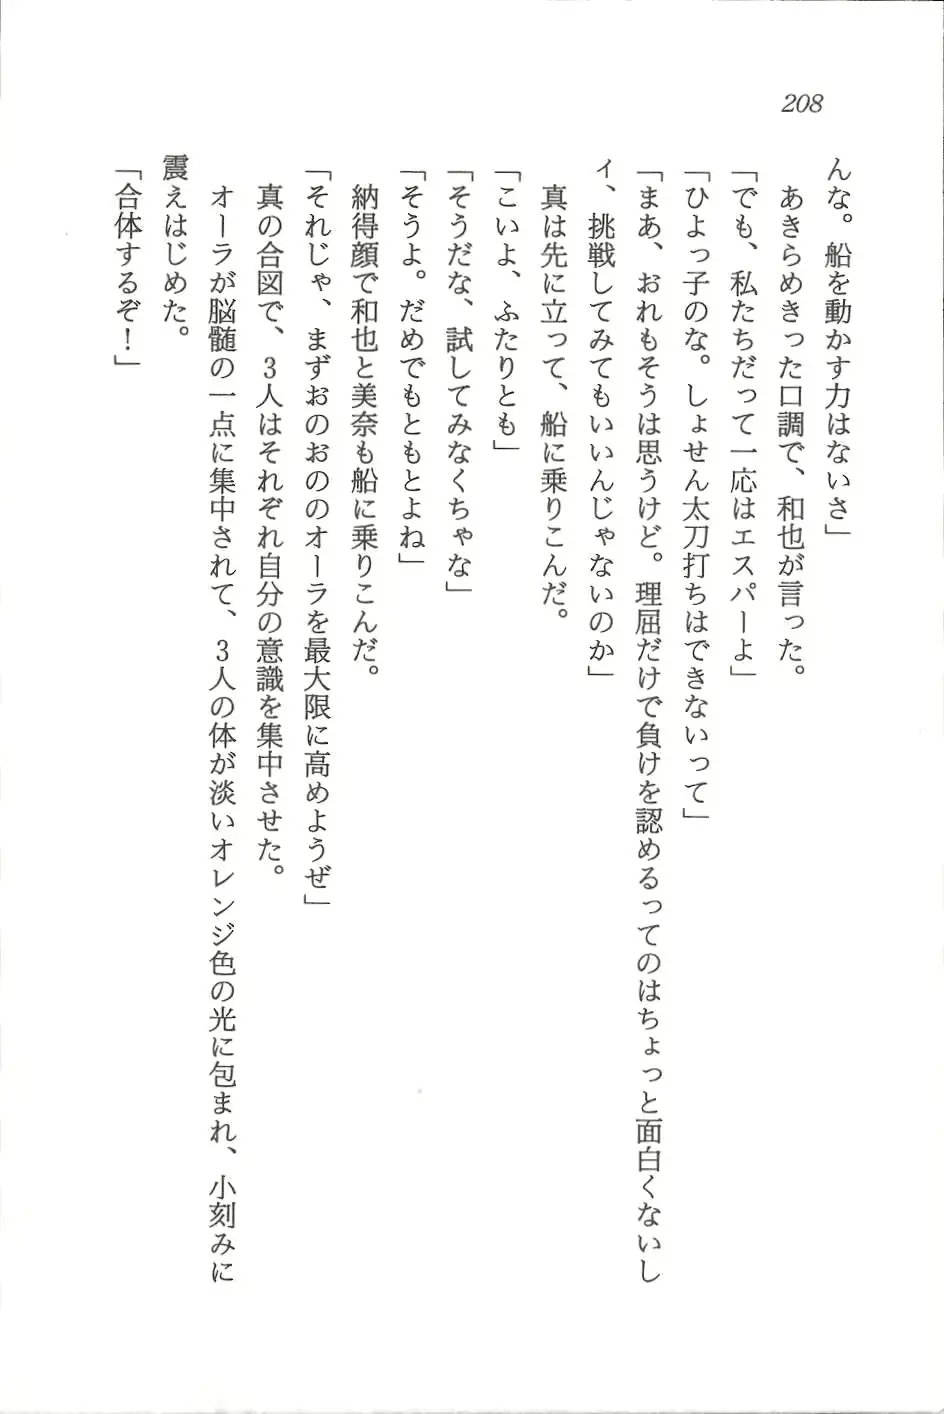 208
んな。船を動かす力はないさ」
　あきらめきった口調で、和也が言った。
「でも、私たちだって一応はエスパーよ」
「ひよっ子のな。しょせん太刀打ちはできないって」
「まあ、おれもそうは思うけど。理屈だけで負けを認めるってのはちょっと面白くないし
ィ、挑戦してみてもいいんじゃないのか」
　真は先に立って、船に乗りこんだ。
「こいよ、ふたりとも」
「そうだな、試してみなくちゃな」
「そうよ。だめでもともとよね」
　納得顔で和也と美奈も船に乗りこんだ。
「それじゃ、まずおのおののオーラを最大限に高めようぜ」
　真の合図で、3人はそれぞれ自分の意識を集中させた。
　オーラが脳髄の一点に集中されて、3人の体が淡いオレンジ色の光に包まれ、小刻みに
震えはじめた。
「合体するぞ！」